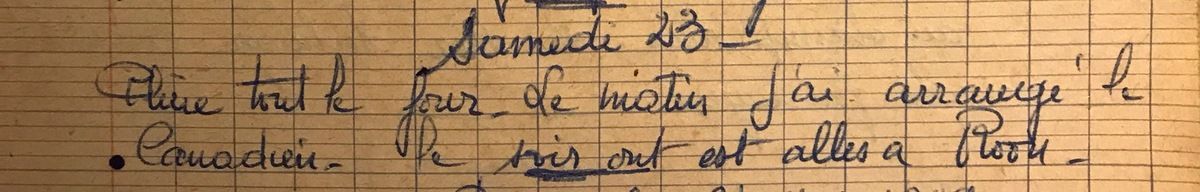 Samedi 23 -
Pluie tout le jour - Le matin j'ai arrangé le
Canadien - Le soir ont est alles a